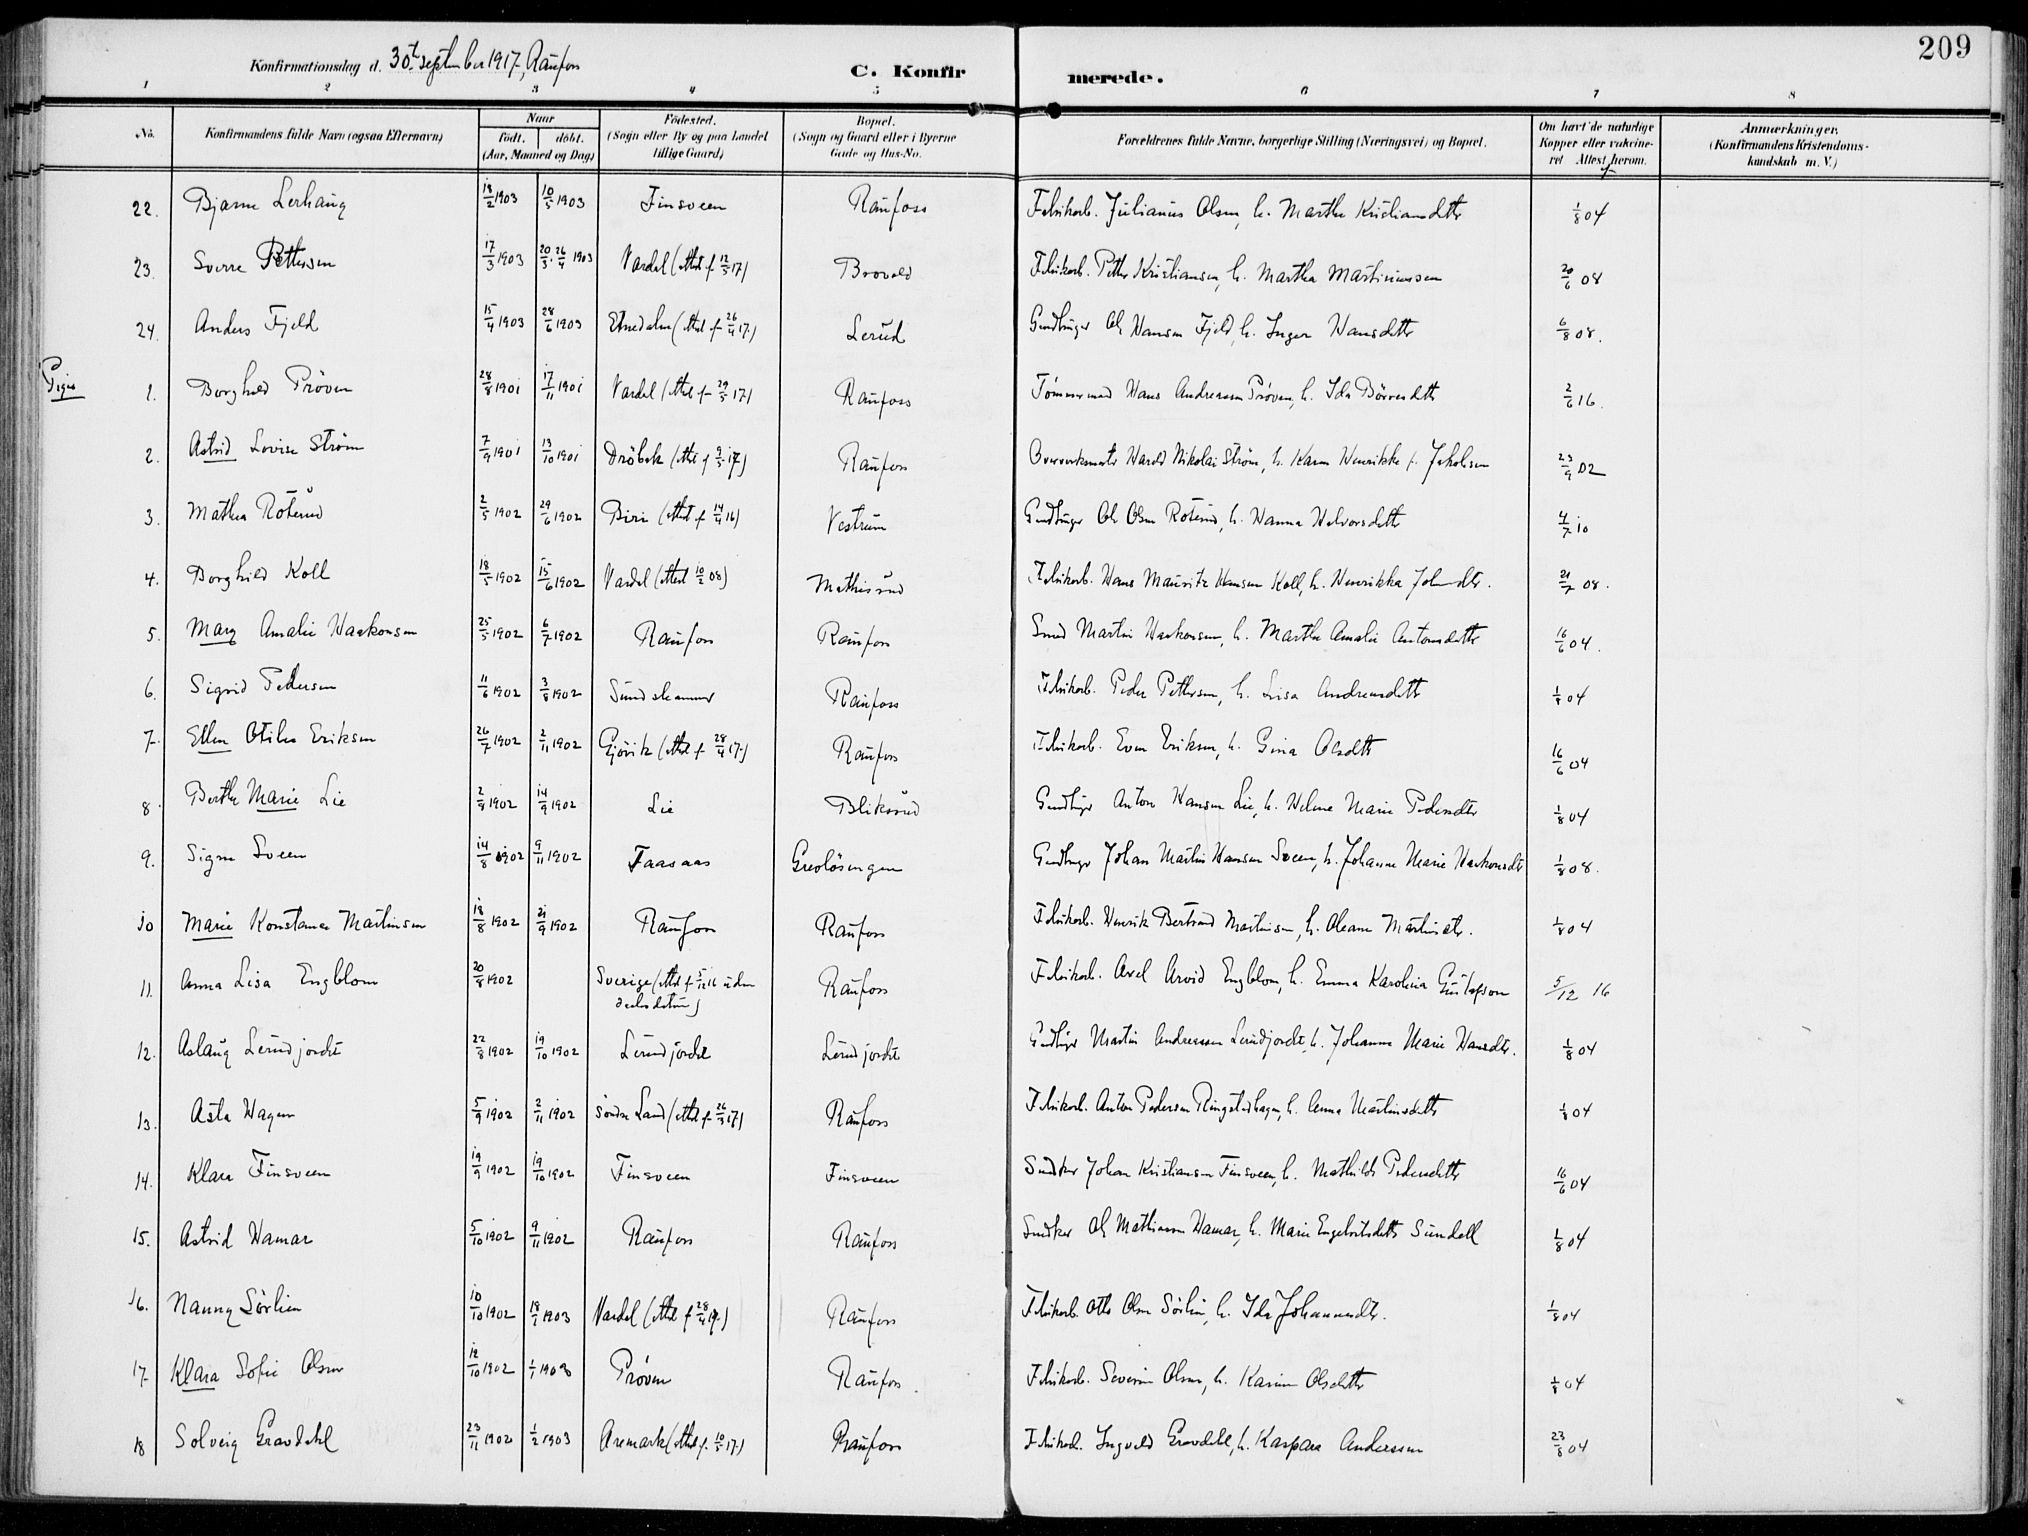 209
Konfirmationsdag d. 30t september 1917, Raufoss
C. Konfirmerede.
1 2 3 4 5 6 7 8
No. Konfirmandens fulde Navn (ogsaa Efternavn) Naar født. døbt. (Aar, Maaned og Dag) Fødested. (Sogn eller By og paa Landet tillige Gaard) Bopæl. (Sogn og Gaard eller i Byerne Gade og Hus-No. Forældrenes fulde Navne, borgerlige Stilling (Næringsvei) og Bopæl. Om havt de naturlige Kopper eller vakcineret Attest herom. Anmærkninger. (Konfirmandens Kristendomskundskab m. V.)
22. Bjarne Lerhaug 18/2 1903 10/5 1903 Finsveen Raufoss Fabrikarb. Julianus Olsen, h. Marthe Kristiansdttr 1/8 04
23. Sverre Pettersen 17/3 1903 20/3. 26/4 1903 Vardal (Attest f. 12/5 17) Brovold Fabrikarb. Petter Kristiansen, h. Martha Martinussen 20/6 08
24. Anders Fjeld 15/4 1903 28/6 1903 Etnedalen (Attest f. 26/4 17.) Lerud Gaardbruger Ole Hansen Fjeld, h. Inger Hansdttr 6/8 08.
Piger
1. Borghild Prøven 28/8 1901 17/11 1901 Vardal (Attest f. 29/5 17) Raufoss Tømmermand Hans Andreassen Prøven, h. Ida Børresdttr 2/6 16.
2. Astrid Lovise Strøm 7/9 1901 13/10 1901 Drøbak (Attest f. 9/5 17) Raufoss Harald Nikolai Strøm, h. Karen Henrikke f. Jakobsen 23/9 02
3. Mathea Røterud 2/5 1902 29/6 1902 Biri (Attest f. 14/4 16) Vestrum Gaardbruger Ole Olsen Røterud, h. Hanna Halvorsdttr 4/7 10
4. Borghild Koll 18/5 1902 15/6 1902 Vardal (Attest 10/2 08) Mathisrud Fabrikarb. Hans Mauritz Hansen Koll, h. Henrikka Johnsdtr. 21/7 08.
5. Mary Amalie Haakonsen 25/5 1902 6/7 1902 Raufoss Raufoss Smed Martin Haakonsen, h. Marthe Amalie Antonsdattr 16/6 04.
6. Sigrid Pettersen 11/6 1902 3/8 1902 Sundstammen Raufoss Fabrikarb. Peder Pettersen, h. Lisa Andreasdttr 1/8 04
7. Ellen Otilie Eriksen 26/7 1902 2/11 1902 Gjøvik (Attest f. 28/4 17.) Raufoss Fabrikarb. Even Eriksen, h. Gina Olsdttr 16/6 04
8. Berthe Marie Lie 2/8 1902 14/9 1902 Lie Bliksrud Gaardbruger Anton Hansen Lie, h. Helene Marie Pedersdtr 1/8 04
9. Signe Sveen 14/8 1902 9/11 1902 Faasaas Grevløsengen Gaardbruger Johan Martin Hansen Sveen, h. Johanne Marie Haakonsdtr 1/8 08.
10 Marie Konstanse Martinsen 18/8 1902 21/9 1902 Raufoss Raufoss Fabrikarb. Henrik Bertrand Martinsen, h. Oleane Martinsdtr. 1/8 04
11. Anna Lisa Engblom 20/8 1902 Sverige (Attest f. 5/12 16 uden daabsdatum) Raufoss Fabrikarb. Axel Arvid Engblom, h. Emma Karolina Gustafson 5/12 16
12. Aslaug Lerudjordet 22/8 1902 19/10 1902 Lerudjordet Lerudjordet Gaardbruger Martin Andreassen Lerudjordet, h. Johanne Marie Hansdtr. 1/8 04
13. Asta Hagen 5/9 1902 2/11 1902 Søndre Land (Attest f. 26/3 17) Raufoss Fabrikarb. Anton Pedersen Ringelihagen, h. Anna Martinsdttr 1/8 04
14. Klara Finsveen 19/9 1902 19/10 1902 Finsveen Finsveen Snedker Johan Kristiansen Finsveen, h. Mathilde Pedersdttr 16/6 04
15. Astrid Hamar 5/10 1902 9/11 1902 Raufoss Raufoss Snedker Ole Mathiassen Hamar, h. Marie Engebritsdttr Sundell 1/8 04
16. Nanny Sørlien 10/10 1902 18/1 1903 Vardal (Attest f 28/4 17.) Raufoss Fabrikarb. Otto Olsen Sørlien, h. Ida Johannesdtr. 1/8 04
17. Klara Sofie Olsen 12/10 1902 1/1 1903 Prøven Raufoss. Fabrikarb. Severin Olsen, h. Karine Olsdttr 1/8 04
18 Solveig Gravdahl 23/11 1902 1/2 1903 Aremark (Attest f. 10/5 17.) Raufoss Fabrikarb. Ingvald Gravdahl, h. Kaspara Andersen 23/8 04